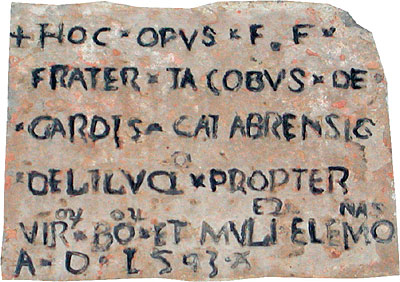 + HOC × OPVS × F. F ×
FRATER × IACOBVS × DE
× GARDIS × CATABRENSIG
× DE × PROPTER
VIR × BO × ET MVLI ELEMO
A × D · 1 5 93 ×